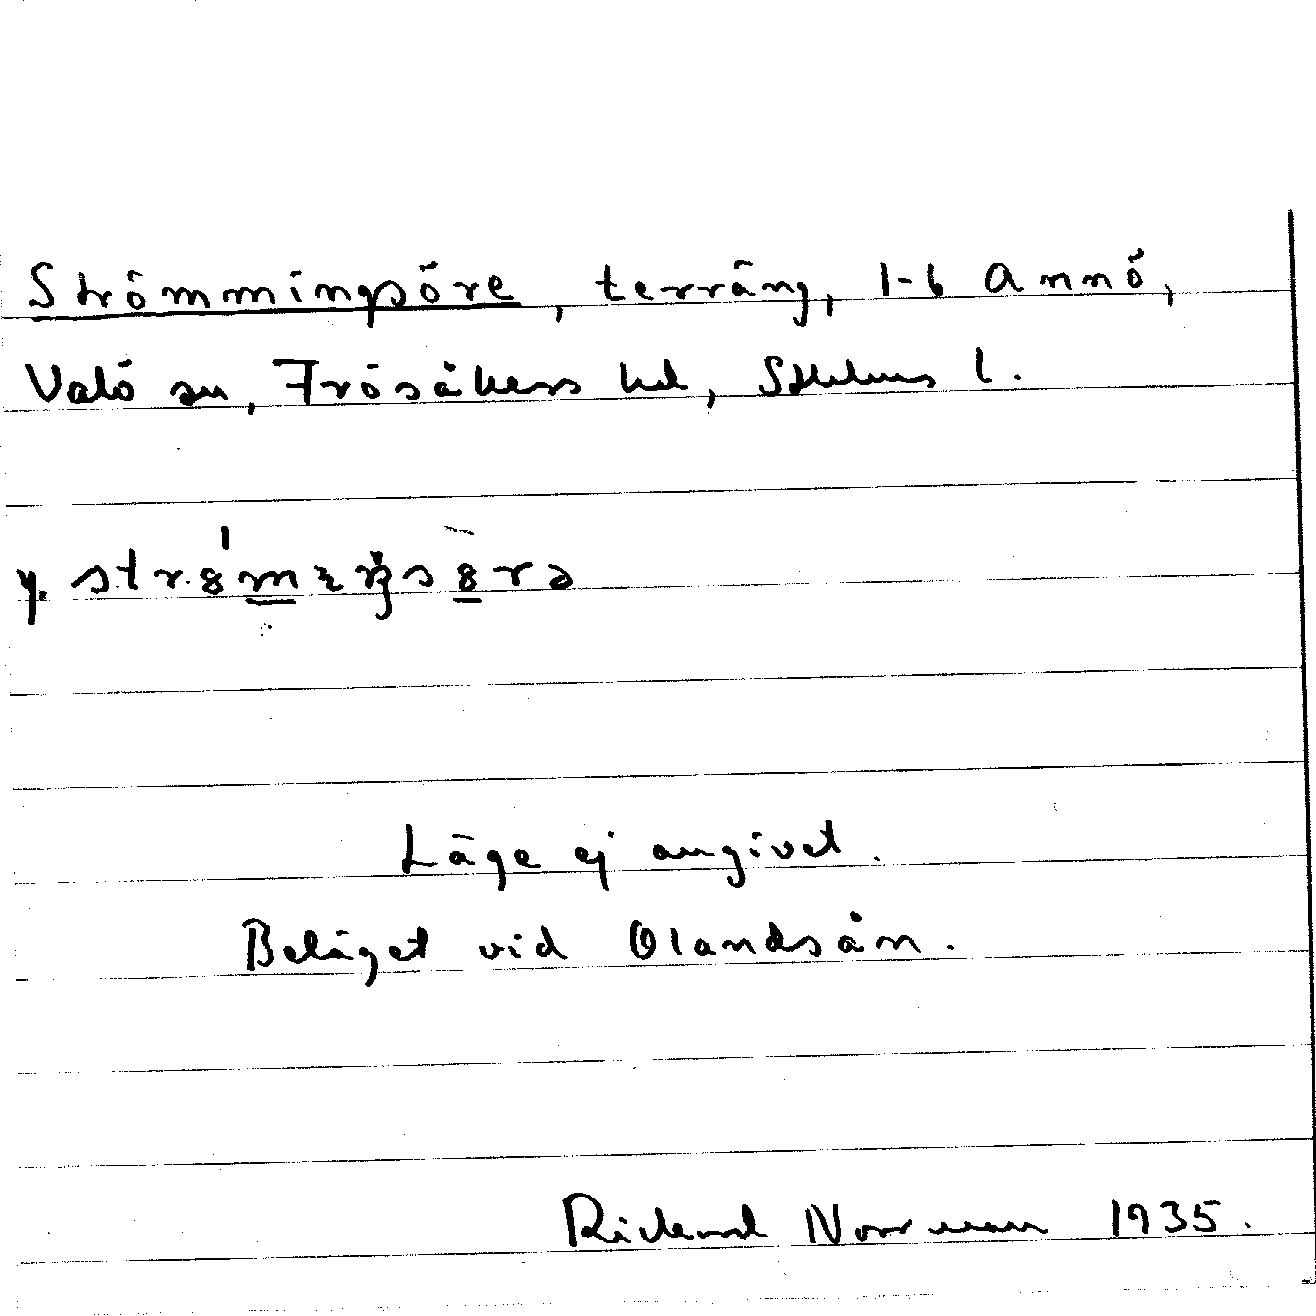 Strömmingsöre, terräng, 1-6 Annö,
Valö sn, Frösåkers hd, Sthlms l.
y. strømıŋsørə
Läge ej angivet.
Beläget vid Olandsån.
Rickard Norrman 1935.